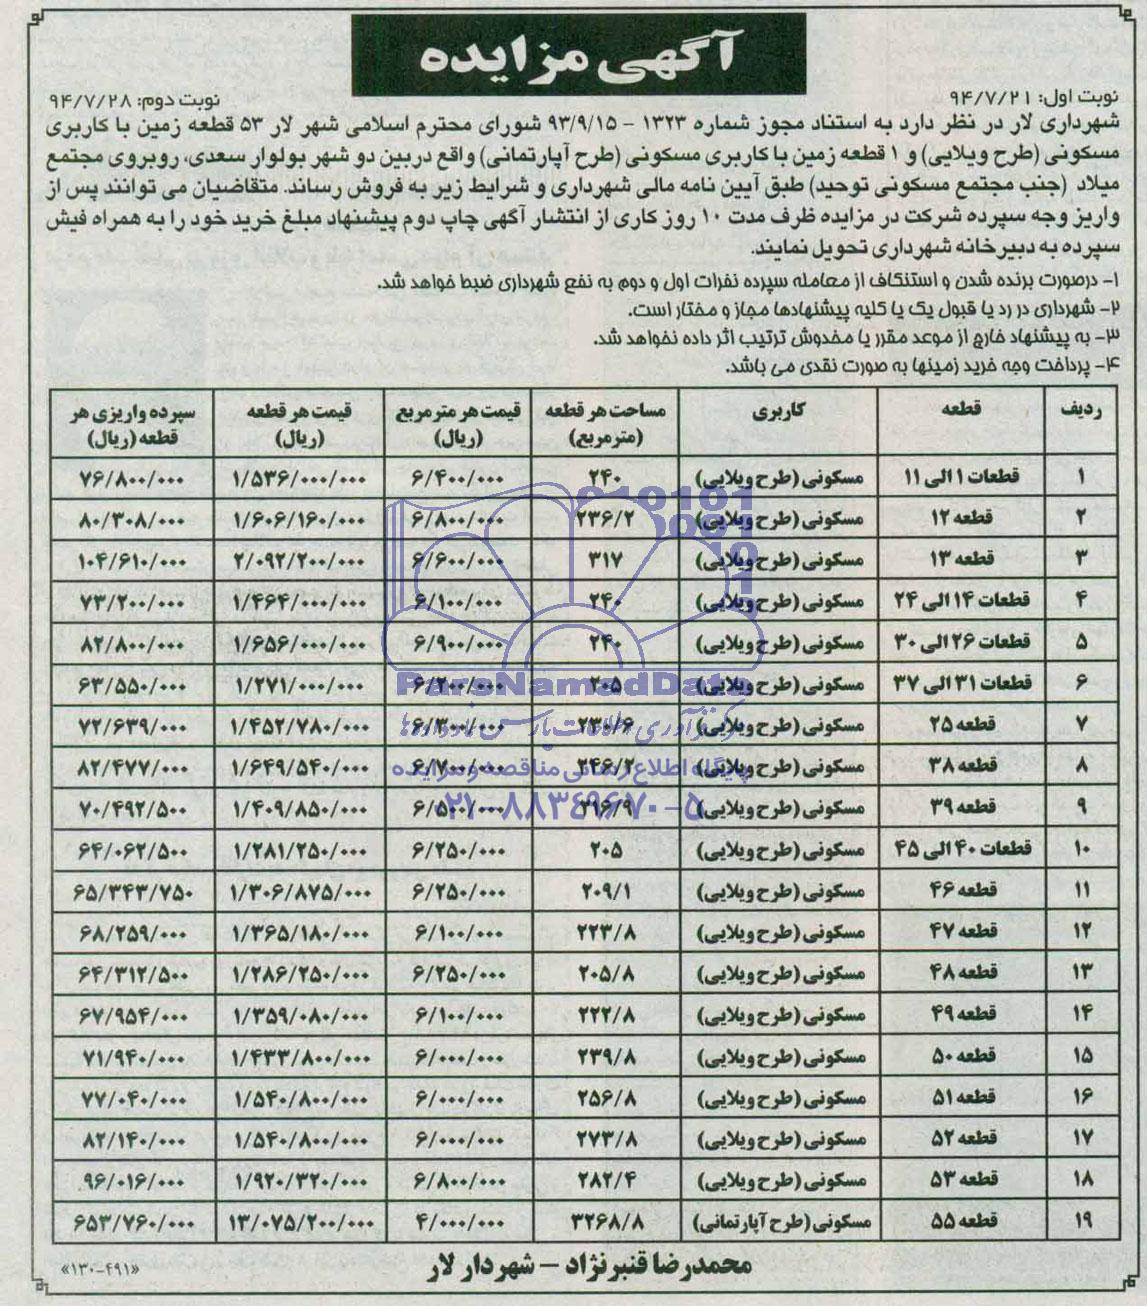 آگهی مزایده
نوبت اول: ۹۴/۷/۲۱ نوبت دوم: ۹۴/۷/۲۸
شهرداری لار در نظر دارد به استناد مجوز شماره ۱۳۲۳ - ۹۳/۹/۱۵ شورای محترم اسلامی شهر لار ۵۳ قطعه زمین با کاربری
مسکونی (طرح ویلایی) و ۱ قطعه زمین با کاربری مسکونی (طرح آپارتمانی) واقع دربین دو شهر بولوار سعدی، روبروی مجتمع
میلاد (جنب مجتمع مسکونی توحید) طبق آیین نامه مالی شهرداری و شرایط زیر به فروش رساند. متقاضیان می توانند پس از
واریز وجه سپرده شرکت در مزایده ظرف مدت ۱۰ روز کاری از انتشار آگهی چاپ دوم پیشنهاد مبلغ خرید خود را به همراه فیش
سپرده به دبیرخانه شهرداری تحویل نمایند.
۱- درصورت برنده شدن و استنکاف از معامله سپرده نفرات اول و دوم به نفع شهرداری ضبط خواهد شد.
۲- شهرداری در رد یا قبول یک یا کلیه پیشنهادها مجاز و مختار است.
۳- به پیشنهاد خارج از موعد مقرر یا مخدوش ترتیب اثر داده نخواهد شد.
۴- پرداخت وجه خرید زمینها به صورت نقدی می باشد.
ردیف قطعه کاربری مساحت هر قطعه (مترمربع) قیمت هر مترمربع (ریال) قیمت هر قطعه (ریال) سپرده واریزی هر قطعه (ریال)
۱ قطعات ۱ الی ۱۱ مسکونی (طرح ویلایی) ۲۴۰ ۶/۴۰۰/۰۰۰ ۱/۵۳۶/۰۰۰/۰۰۰ ۷۶/۸۰۰/۰۰۰
۲ قطعه ۱۲ مسکونی (طرح ویلایی) ۲۳۶/۲ ۶/۸۰۰/۰۰۰ ۱/۶۰۶/۱۶۰/۰۰۰ ۸۰/۳۰۸/۰۰۰
۳ قطعه ۱۳ مسکونی (طرح ویلایی) ۳۱۷ ۶/۶۰۰/۰۰۰ ۲/۰۹۲/۲۰۰/۰۰۰ ۱۰۴/۶۱۰/۰۰۰
۴ قطعات ۱۴ الی ۲۴ مسکونی (طرح ویلایی) ۲۴۰ ۶/۱۰۰/۰۰۰ ۱/۴۶۴/۰۰۰/۰۰۰ ۷۳/۲۰۰/۰۰۰
۵ قطعات ۲۶ الی ۳۰ مسکونی (طرح ویلایی) ۲۴۰ ۶/۹۰۰/۰۰۰ ۱/۶۵۶/۰۰۰/۰۰۰ ۸۲/۸۰۰/۰۰۰
۶ قطعات ۳۱ الی ۳۷ مسکونی (طرح ویلایی) ۲۰۵ ۶/۲۰۰/۰۰۰ ۱/۲۷۱/۰۰۰/۰۰۰ ۶۳/۵۵۰/۰۰۰
۷ قطعه ۲۵ مسکونی (طرح ویلایی) ۲۳۰/۶ ۶/۳۰۰/۰۰۰ ۱/۴۵۲/۷۸۰/۰۰۰ ۷۲/۶۳۹/۰۰۰
۸ قطعه ۳۸ مسکونی (طرح ویلایی) ۲۴۶/۲ ۶/۷۰۰/۰۰۰ ۱/۶۴۹/۵۴۰/۰۰۰ ۸۲/۴۷۷/۰۰۰
۹ قطعه ۳۹ مسکونی (طرح ویلایی) ۲۱۶/۹ ۶/۵۰۰/۰۰۰ ۱/۴۰۹/۸۵۰/۰۰۰ ۷۰/۴۹۲/۵۰۰
۱۰ قطعات ۴۰ الی ۴۵ مسکونی (طرح ویلایی) ۲۰۵ ۶/۲۵۰/۰۰۰ ۱/۲۸۱/۲۵۰/۰۰۰ ۶۴/۰۶۲/۵۰۰
۱۱ قطعه ۴۶ مسکونی (طرح ویلایی) ۲۰۹/۱ ۶/۲۵۰/۰۰۰ ۱/۳۰۶/۸۷۵/۰۰۰ ۶۵/۳۴۳/۷۵۰
۱۲ قطعه ۴۷ مسکونی (طرح ویلایی) ۲۲۳/۸ ۶/۱۰۰/۰۰۰ ۱/۳۶۵/۱۸۰/۰۰۰ ۶۸/۲۵۹/۰۰۰
۱۳ قطعه ۴۸ مسکونی (طرح ویلایی) ۲۰۵/۸ ۶/۲۵۰/۰۰۰ ۱/۲۸۶/۲۵۰/۰۰۰ ۶۴/۳۱۲/۵۰۰
۱۴ قطعه ۴۹ مسکونی (طرح ویلایی) ۲۲۲/۸ ۶/۱۰۰/۰۰۰ ۱/۳۵۹/۰۸۰/۰۰۰ ۶۷/۹۵۴/۰۰۰
۱۵ قطعه ۵۰ مسکونی (طرح ویلایی) ۲۳۹/۸ ۶/۰۰۰/۰۰۰ ۱/۴۳۳/۸۰۰/۰۰۰ ۷۱/۹۴۰/۰۰۰
۱۶ قطعه ۵۱ مسکونی (طرح ویلایی) ۲۵۶/۸ ۶/۰۰۰/۰۰۰ ۱/۵۴۰/۸۰۰/۰۰۰ ۷۷/۰۴۰/۰۰۰
۱۷ قطعه ۵۲ مسکونی (طرح ویلایی) ۲۷۳/۸ ۶/۰۰۰/۰۰۰ ۱/۵۴۰/۸۰۰/۰۰۰ ۸۲/۱۴۰/۰۰۰
۱۸ قطعه ۵۳ مسکونی (طرح ویلایی) ۲۸۲/۴ ۶/۸۰۰/۰۰۰ ۱/۹۲۰/۳۲۰/۰۰۰ ۹۶/۰۱۶/۰۰۰
۱۹ قطعه ۵۵ مسکونی (طرح آپارتمانی) ۳۲۶۸/۸ ۴/۰۰۰/۰۰۰ ۱۳/۰۷۵/۲۰۰/۰۰۰ ۶۵۳/۷۶۰/۰۰۰
ParsNamadData
پایگاه اطلاع رسانی مناقصه و مزایده
۰۲۱-۸۸۳۴۹۶۷۰-۵
محمدرضا قنبرنژاد - شهردار لار
«۱۳۰-۴۹۱»